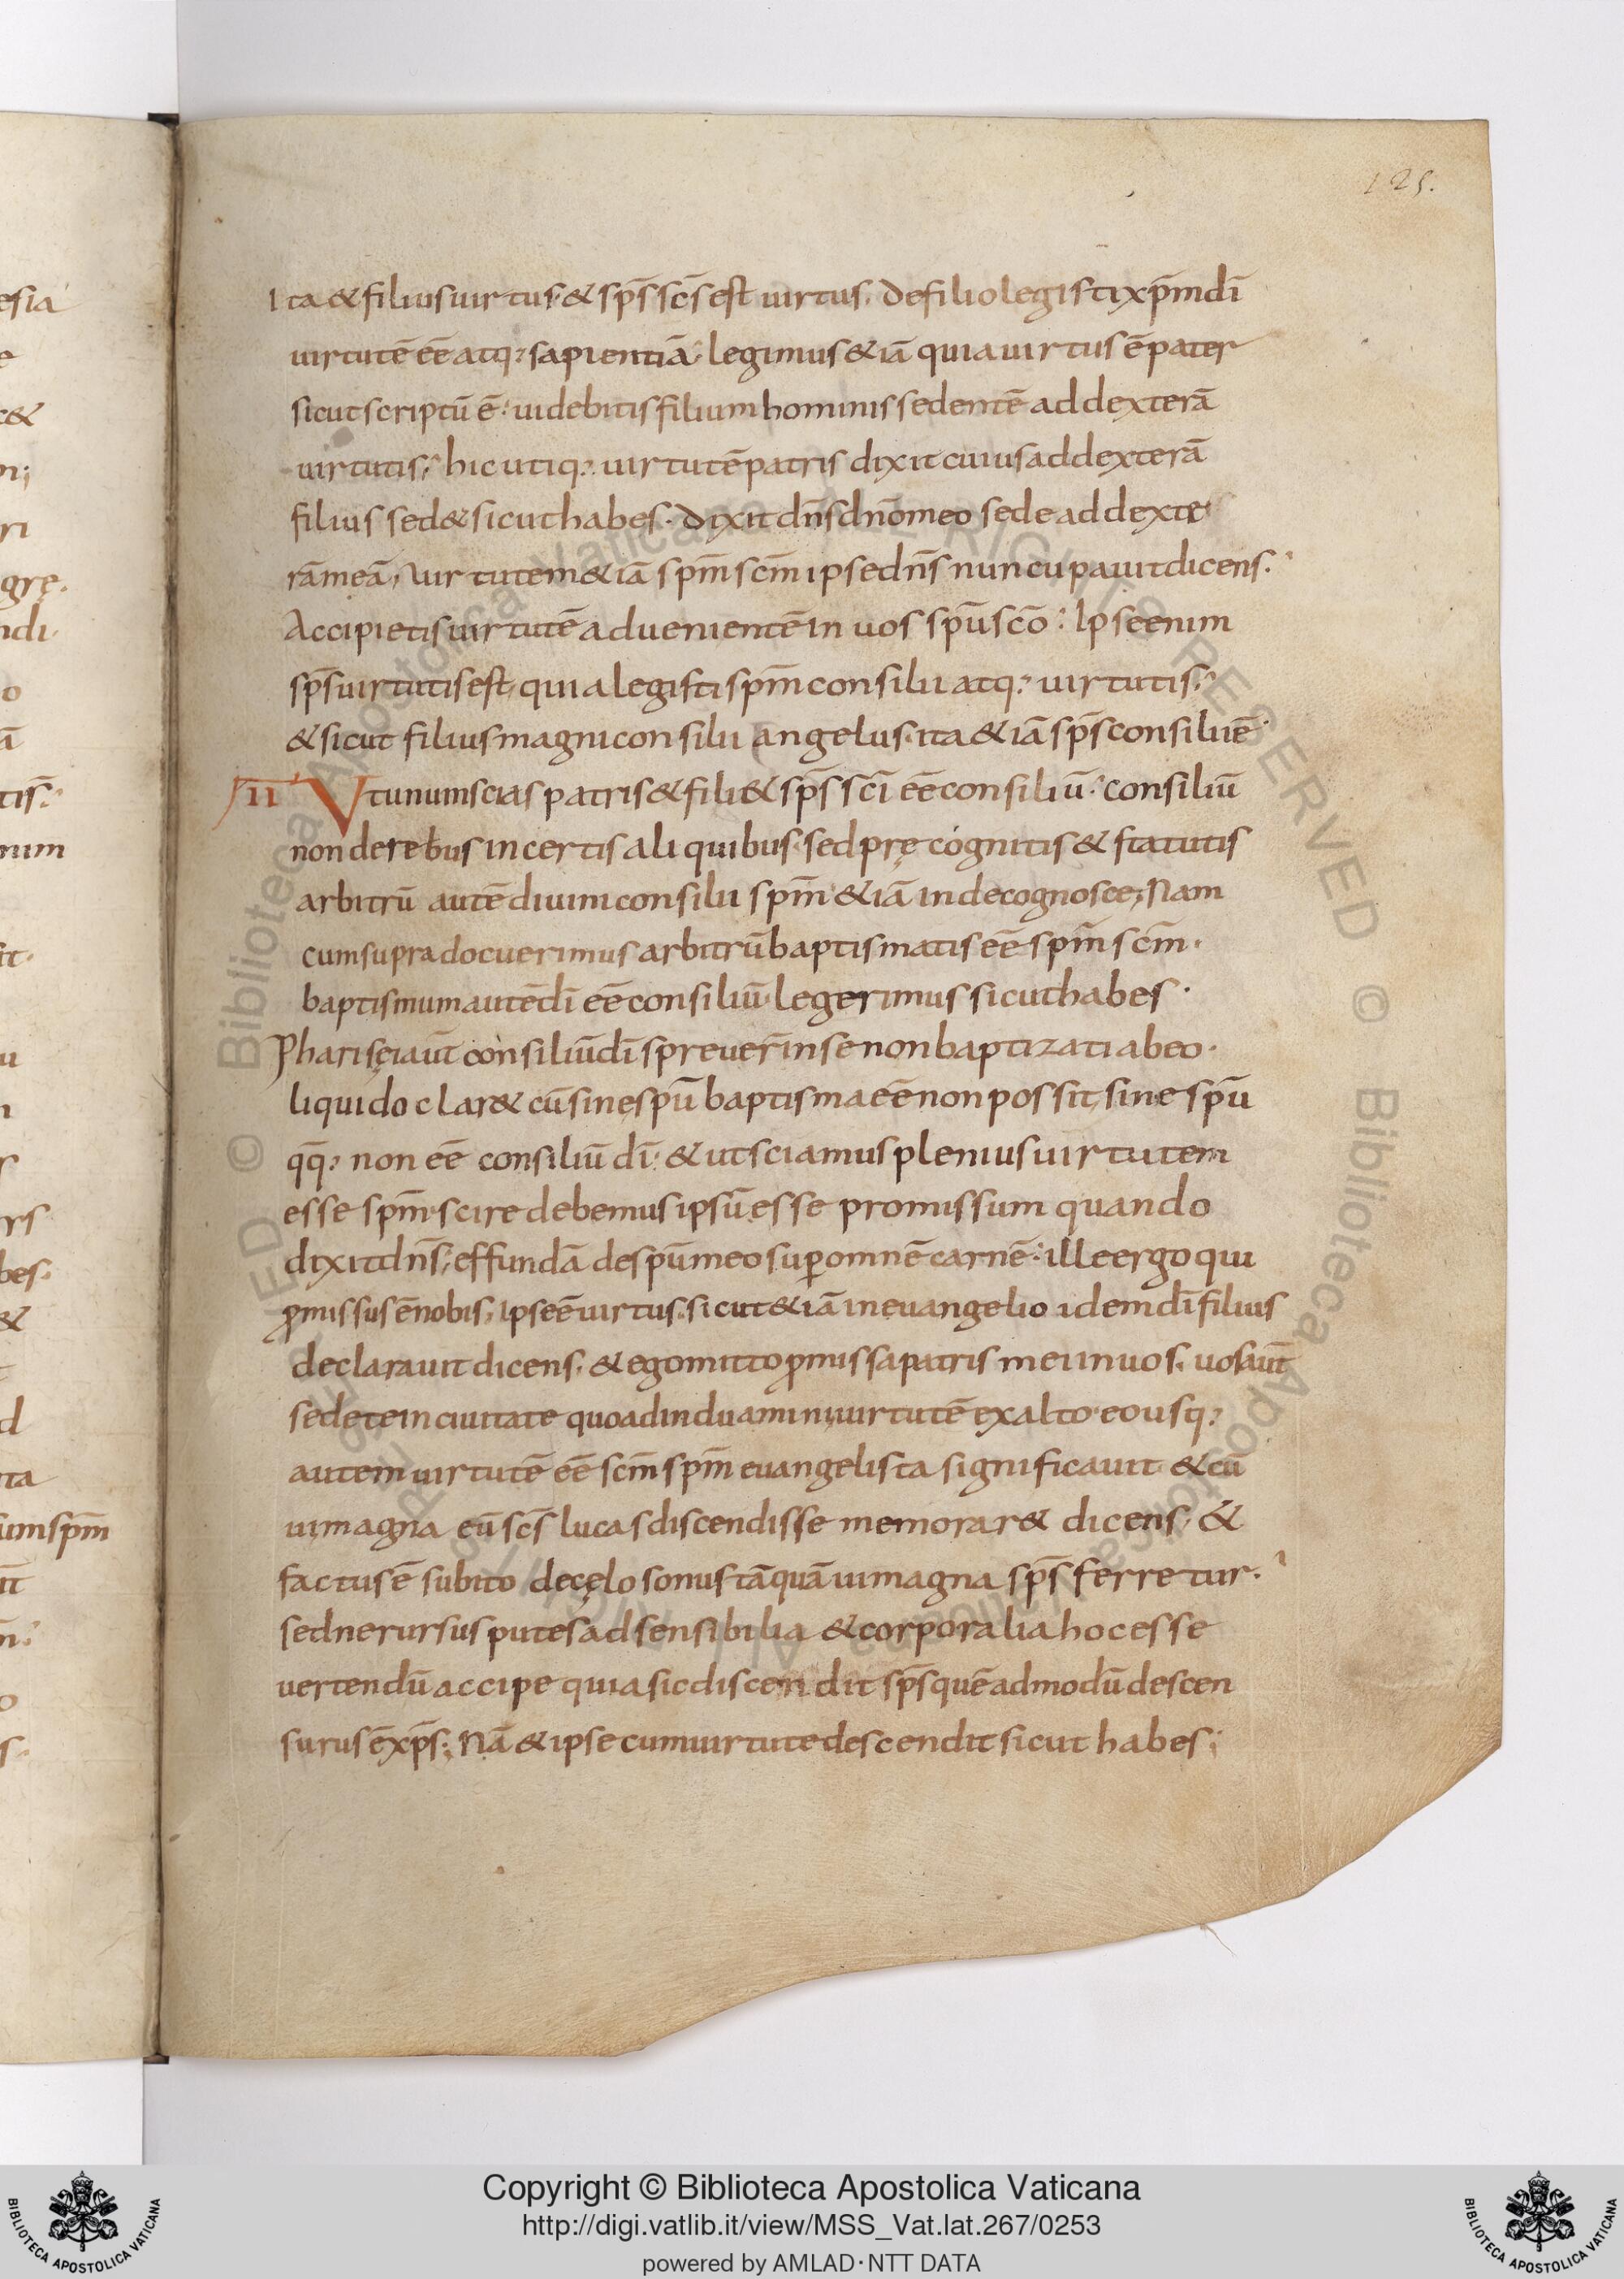 125.
Ita & filius uirtus & sp̄s sc̄s est uirtus. De filio legisti xp̄m dī
uirtutē eē atq; sapientiā. legimus & iā quia uirtus ē pater
sicut scriptū ē. uidebitis filium hominis sedentē ad dexterā
uirtutis. hic utiq; uirtutē patris dixit cuius ad dexterā
filius sed& sicut habes. Dixit dn̄s dn̄o meo sede ad dexte
rā meā. uirtutem & iā sp̄m sc̄m ipse dn̄s nuncupauit dicens.
Accipietis uirtutē aduenientē in uos sp̄u sc̄o. Ipse enim
sp̄s uirtutis est, quia legisti sp̄m consilii atq; uirtutis.
& sicut filius magni consilii angelus. ita & iā sp̄s consilii ē
III Vt unum scias patris & fili & sp̄s sc̄i eē consiliū. consiliū
non de rebus incertis aliquibus. sed pręcognitis & statutis
arbitrū autē diuini consilii sp̄m & iā inde cognosce; Nam
cum supra docuerimus arbitrū baptismatis eē sp̄m sc̄m.
baptismum autē dī eē consiliū. legerimus sicut habes.
Pharisęi aut̄ consiliū dī spreuer̄ in se non baptizati ab eo.
liquido clar& cū sine sp̄u baptisma eē non possit, sine sp̄u
qq̄; non eē consiliū dī. & ut sciamus plenius uirtutem
esse sp̄m. scire debemus ipsū esse promissum quando
dixit dn̄s, effundā de sp̄u meo sup omnē carnē. ille ergo qui
pmissus ē nobis, ipse ē uirtus. sicut & iā in euangelio idem dī filius
declarauit dicens. & ego mitto pmissa patris mei in uos. uos aut̄
sedete in ciuitate quoad induamini uirtutē ex alto. eo usq;
autem uirtutē eē sc̄m sp̄m euangelista significauit. & cū
ui magna eū sc̄s lucas discendisse memorar& dicens. &
factus ē subito de cęlo sonus tāquā ui magna sp̄s ferretur.
sed ne rursus putes ad sensibilia & corporalia hoc esse
uertendū accipe quia sic discendit sp̄s quē admodū descen
surus ē xp̄s; Nā & ipse cum uirtute descendit sicut habes;
esia
e
c&
n;
ri
gre.
ndi.
o
ā
tis.
num
it.
u
n
r
rs
bes.
&
t
d
ita
sum sp̄m
ūt
n̄.
o
s.
© Biblioteca Apostolica Vaticana ALL RIGHTS RESERVED
Copyright © Biblioteca Apostolica Vaticana
http://digi.vatlib.it/view/MSS_Vat.lat.267/0253
powered by AMLAD · NTT DATA
BIBLIOTECA APOSTOLICA VATICANA
BIBLIOTECA APOSTOLICA VATICANA